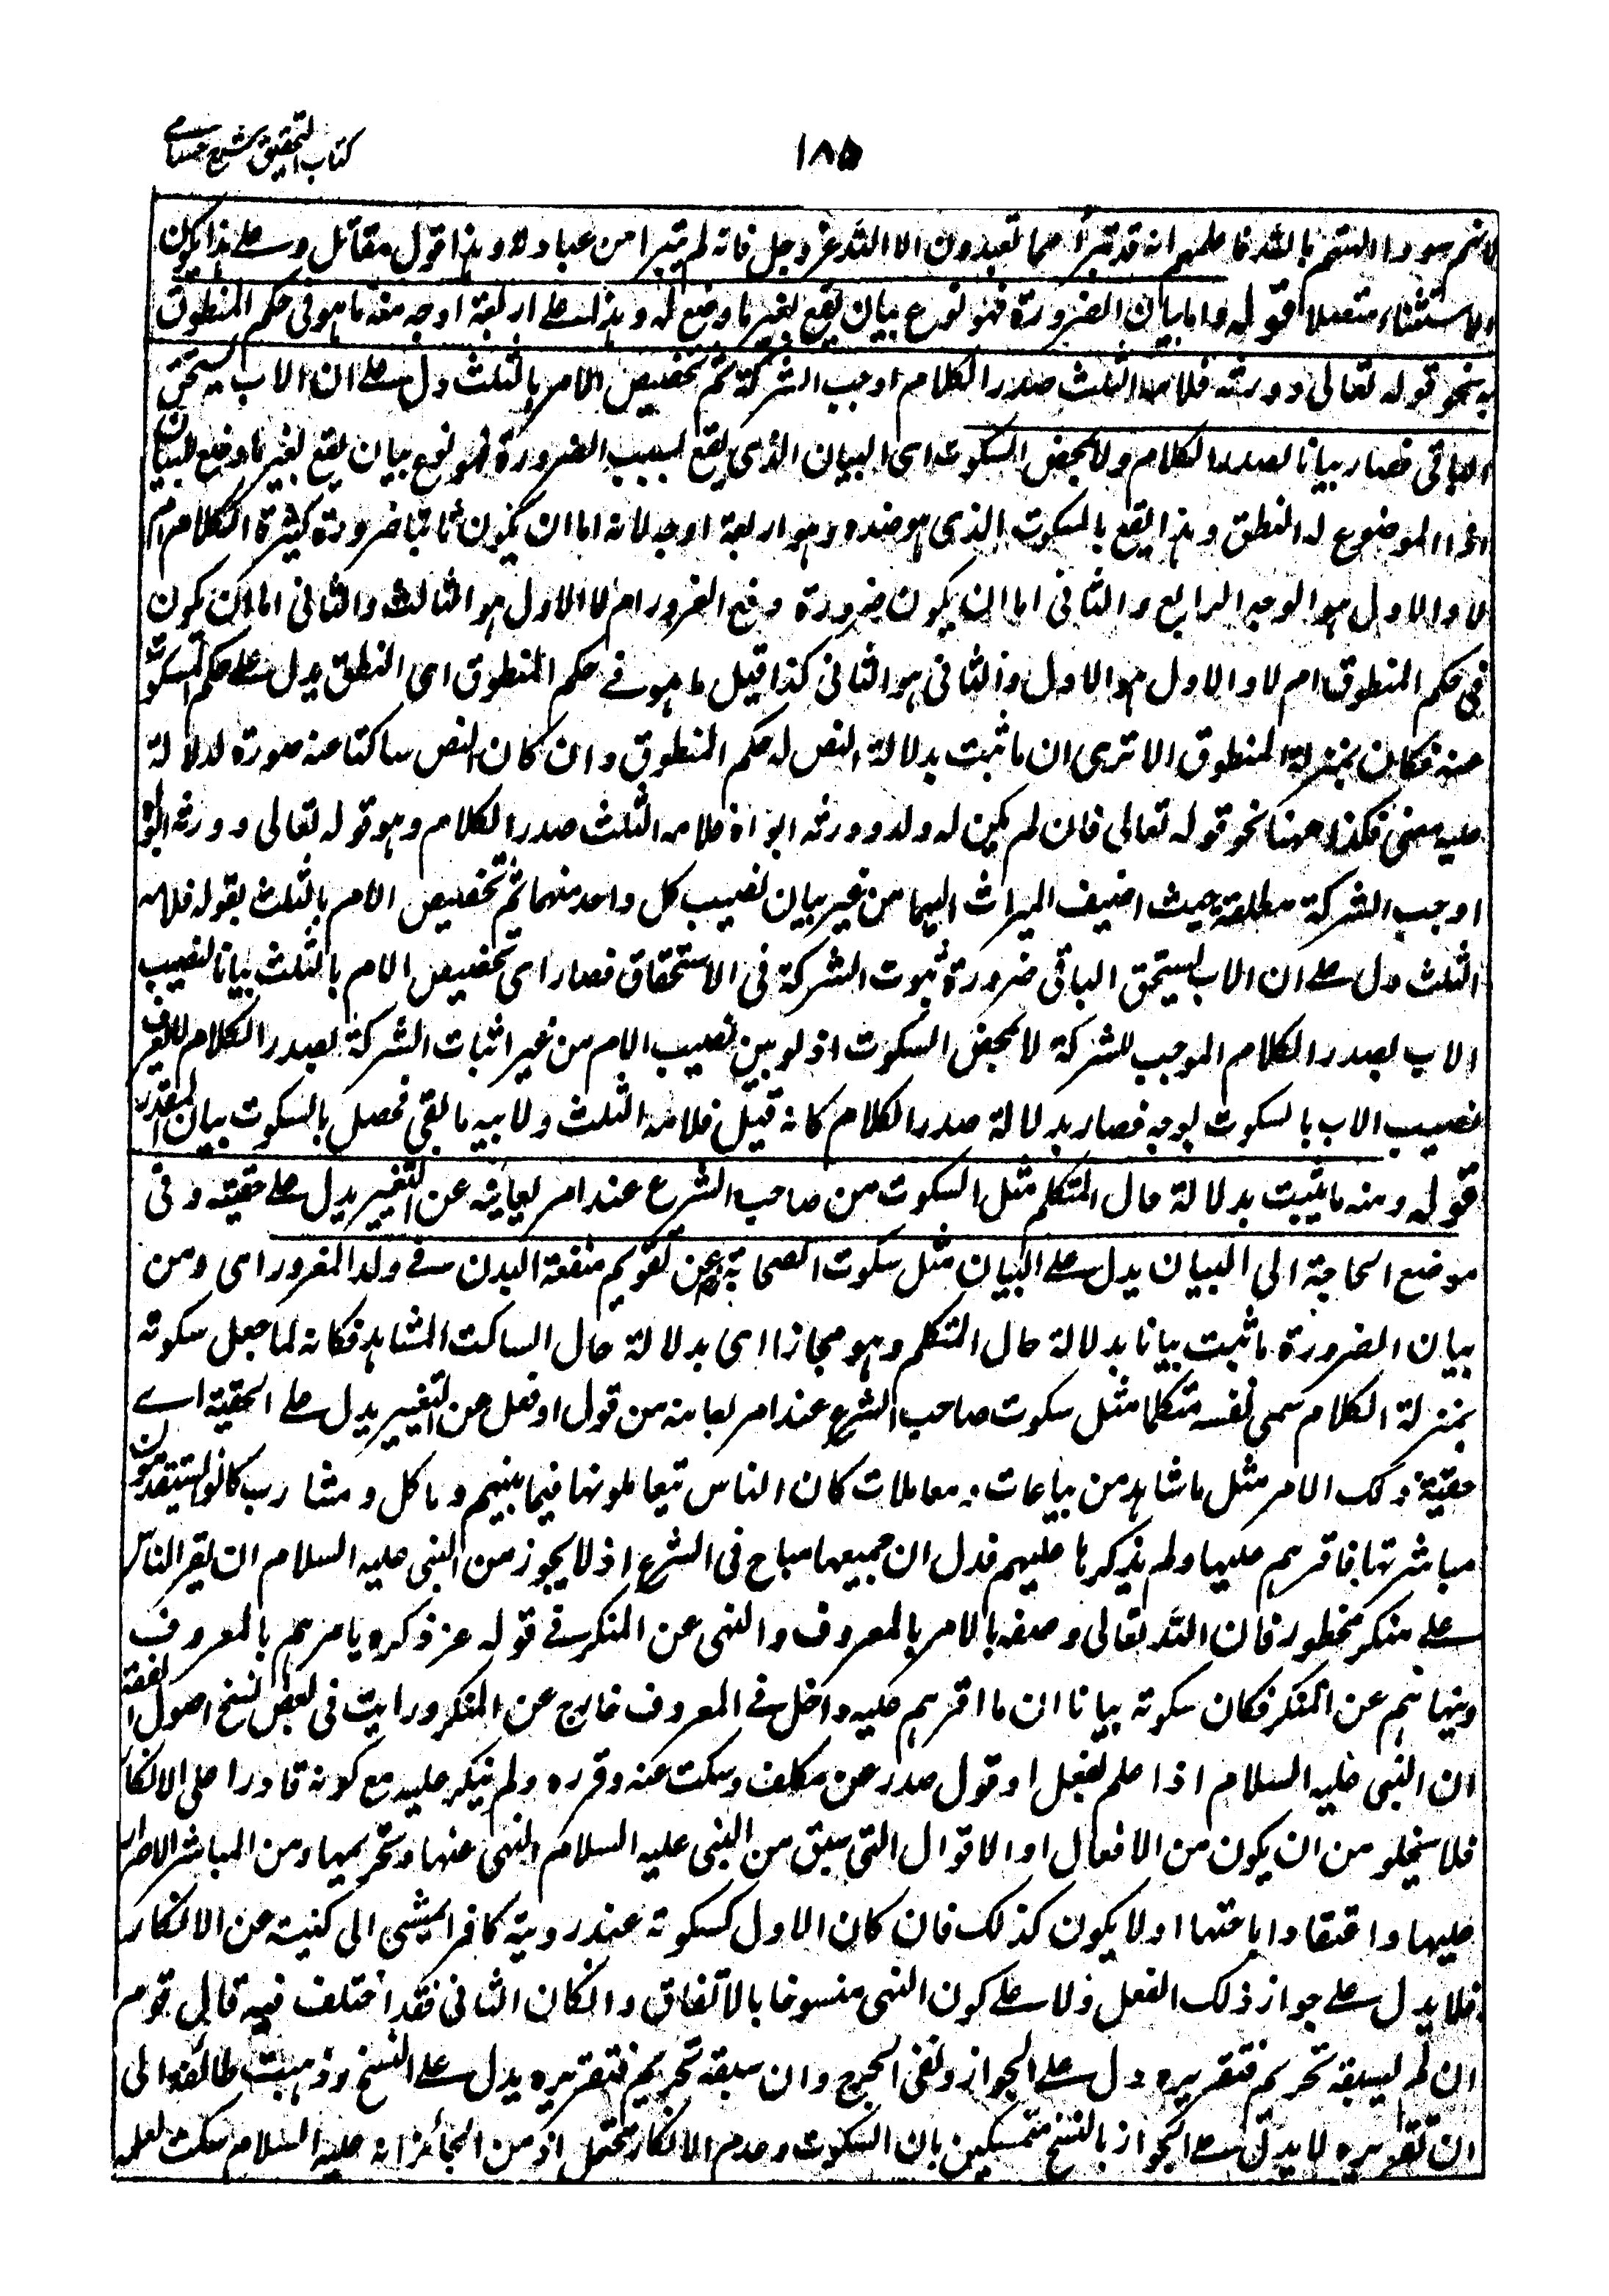 كتاب التحقيق شرح حسامي
١٨٥
لانهم سووا آلهتهم بالله فاعلمهم انه قد تبرأ مما تعبدون الا الله عز وجل فانه لم يتبرا من عبادته وهذا قول مقاتل وعلى هذا يكون
الاستثناء متصلا قوله واما بيان الضرورة فهو نوع بيان يقع بغير ما وضع له وهذا على اربعة اوجه منه ما هو في حكم المنطوق
به نحو قوله تعالى وورثه فلامه الثلث صدر الكلام اوجب الشركة ثم تخصيص الام بالثلث دل على ان الاب يستحق
الباقي فصار بيانا لصدر الكلام ولا بمحض السكوت اى البيان الذى يقع بسبب الضرورة فهو نوع بيان يقع بغير ما وضع للبيان
اذ الموضوع له النطق وهذا يقع بالسكوت الذى هو ضده وهو اربعة اوجه لانه اما ان يكون ثابتا ضرورة كثرة الكلام ام
لا والاول هو الوجه الرابع والثانى اما ان يكون ضرورة دفع الغرور ام لا الاول هو الثالث والثانى اما ان يكون
فى حكم المنطوق ام لا والاول هو الاول والثانى هو الثانى كذا قيل ما هو فى حكم المنطوق اى النطق يدل على حكم المسكوت
عنه فكان بمنزلة المنطوق الا ترى ان ما ثبت بدلالة النص له حكم المنطوق وان كان النص ساكتا عنه صورة لدلالة
عليه معنى فكذا ههنا نحو قوله تعالى فان لم يكن له ولد وورثه ابواه فلامه الثلث صدر الكلام وهو قوله تعالى وورثه ابواه
اوجب الشركة مطلقة حيث اضيف الميراث اليهما من غير بيان نصيب كل واحد منهما ثم تخصيص الام بالثلث بقوله فلامه
الثلث دل على ان الاب يستحق الباقى ضرورة ثبوت الشركة فى الاستحقاق فصار اى تخصيص الام بالثلث بيانا لنصيب
الاب بصدر الكلام الموجب للشركة لا بمحض السكوت اذ لو بين نصيب الام من غير اثبات الشركة بصدر الكلام لم يعرف
نصيب الاب بالسكوت بوجه فصار بدلالة صدر الكلام كانه قيل فلامه الثلث ولابيه ما بقى فحصل بالسكوت بيان المقدر
قوله ومنه ما يثبت بدلالة حال المتكلم مثل السكوت من صاحب الشرع عند امر يعاينه عن التغيير يدل على حقيته وفى
موضع الحاجة الى البيان يدل على البيان مثل سكوت الصحابة عن تقويم منفعة البدن فى ولد المغرور اى ومن
بيان الضرورة ما ثبت بيانا بدلالة حال المتكلم وهو مجاز اى بدلالة حال الساكت المشاهد فكانه لما جعل سكوته
بمنزلة الكلام سمى نفسه متكلما مثل سكوت صاحب الشرع عند امر يعاينه من قول او فعل عن التغيير يدل على الحقية اى
حقية ذلك الامر مثل ما شاهد من بياعات ومعاملات كان الناس يتعاملونها فيما بينهم وماكل ومشارب كانوا يستعدون
مباشرتها فاقرهم عليها ولم ينكرها عليهم فدل ان جميعها مباح فى الشرع اذ لا يجوز من النبى عليه السلام ان يقر الناس
على منكر محظور فان الله تعالى وصفه بالامر بالمعروف والنهى عن المنكر فى قوله عز ذكره يامرهم بالمعروف
وينهاهم عن المنكر فكان سكوته بيانا ان ما اقرهم عليه داخل فى المعروف خارج عن المنكر ورايت فى بعض نسخ اصول الفقه
ان النبى عليه السلام اذا علم بفعل او قول صدر عن مكلف وسكت عنه وقرره ولم ينكر عليه مع كونه قادرا على الانكار
فلا يخلو من ان يكون من الافعال او الاقوال التى سبق من النبى عليه السلام النهى عنها وتحريمها ومن المباشر الاصرار
عليها واعتقاد اباحتها او لا يكون كذلك فان كان الاول كسكوته عند روية كافر يمشى الى كنيسة عن الانكار
فلا يدل على جواز ذلك الفعل ولا على كون النهى منسوخا بالاتفاق وان كان الثانى فقد اختلف فيه قال قوم
ان لم يسبقه تحريم فتقريره دل على الجواز ونفى الحرج وان سبقه تحريم فتقريره يدل على النسخ وذهبت طائفة الى
ان تقريره لا يدل على الجواز بالنسخ متمسكين بان السكوت وعدم الانكار محتمل اذ من الجائز انه عليه السلام سكت لعلمه